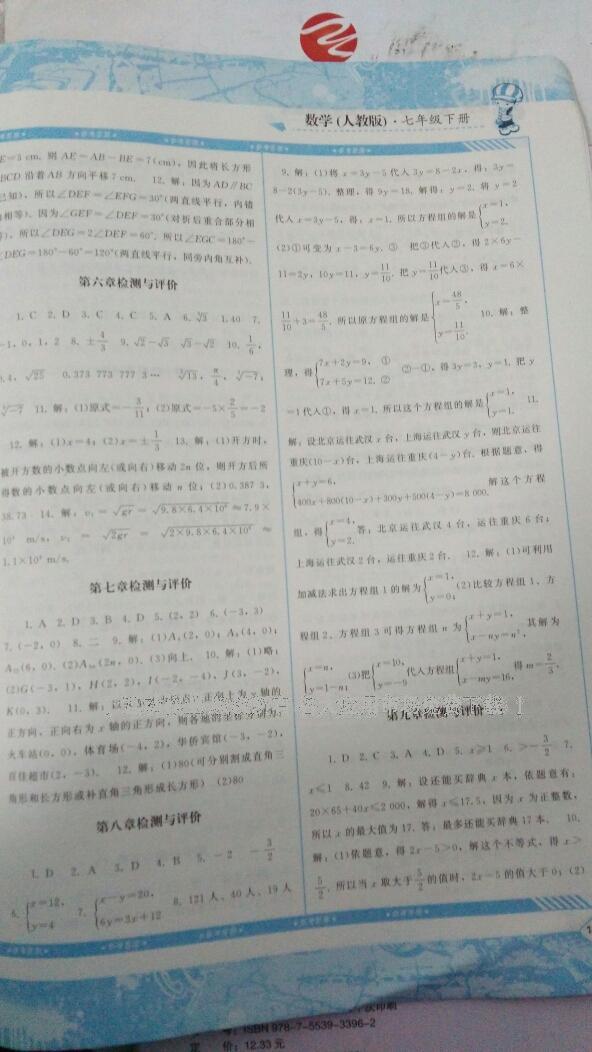 数学(人教版)·七年级下册
E=3 cm. 则 AE=AB-BE=7(cm), 因此将长方形
BCD 沿着 AB 方向平移 7 cm. 12. 解: 因为 AD∥BC
已知), 所以∠DEF=∠EFG=30°(两直线平行, 内错
相等). 因为∠GEF=∠DEF=30°(对折后重合部分相
), 所以∠DEG=2∠DEF=60°. 所以∠EGC=180°-
∠DEG=180°-60°=120°(两直线平行, 同旁内角互补).
第六章检测与评价
1. C 2. D 3. C 4. C 5. A 6. ∛3 7.
-1, 0, 1, 2 8. ±4/3 9. √2-√3 √3-√2 10. 1/6,
0.4, √25 0.373 773 777 3… ∛13, π/4, ∛-7,
∛-7 11. 解: (1)原式=-3/11; (2)原式=-5×2/5=-2
12. 解: (1)x=4; (2)x=±1/3 13. 解: (1)开方时,
被开方数的小数点向左(或向右)移动 2n 位, 则开方后所
得数的小数点向左(或向右)移动 n 位; (2)0.387 3,
38.73 14. 解: v₁=√gr=√9.8×6.4×10⁶≈7.9×
10³ m/s, v₂=√2gr=√2×9.8×6.4×10⁶≈
1.1×10⁴ m/s.
第七章检测与评价
1. A 2. D 3. B 4. D 5. (2, 2) 6. (-3, 3)
7. (-2, 0) 8. 二 9. 解: (1)A₁(2, 0); A₃(4, 0);
(6, 0). (2n, 0). (3)向上. 10. 解: (1)略;
(2)G(-3, 1), H(2, 2), I(-2, -4), J(3, -2),
K(0, 3). 11. 解: 正向上为 y 轴的
正方向, 正向右为 x 轴的正方向, 则各地的坐标分别为:
火车站(0, 0), 体育场(-4, 2), 华侨宾馆(-3, -2),
百佳超市(2, -3). 12. 解: (1)80(可分别割成直角三
角形和长方形或补直角三角形成长方形) (2)80
第八章检测与评价
1. D 2. A 3. D 4. B 5. -2 -3/2
6. {x=12, y=4 7. {x-y=20, 6y=3x+12 8. 121 人、40 人、19 人
9. 解: (1)将 x=3y-5 代入 3y=8-2x, 得: 3y=
8-2(3y-5). 整理, 得 9y=18. 解得: y=2. 将 y=2
代入 x=3y-5, 得: x=1. 所以方程组的解是{x=1, y=2.
(2)①可变为 x-3=6y. ③ 把③代入②, 得 2×6y-
11=2y, 10y=11, y=11/10. 把 y=11/10代入③, 得 x=6×
11/10+3=48/5. 所以原方程组的解是{x=48/5, y=11/10. 10. 解: 整
理, 得{7x+2y=9, ① 7x+5y=12. ② ②-①, 得 3y=3, y=1. 把 y
=1代入①, 得 x=1. 所以这个方程组的解是{x=1, y=1. 11.
解: 设北京运往武汉 x 台, 上海运往武汉 y 台, 则北京运往
重庆(10-x)台, 上海运往重庆(4-y)台. 根据题意, 得
{x+y=6, 400x+800(10-x)+300y+500(4-y)=8 000. 解这个方程
组, 得{x=4, y=2. 答: 北京运往武汉 4 台, 运往重庆 6 台;
上海运往武汉 2 台, 运往重庆 2 台. 12. 解: (1)可利用
加减法求出方程组 1 的解为{x=1, y=0; (2)比较方程组 1、方
程组 2、方程组 3 可得方程组 n 为{x+y=1, x-ny=n², 其解为
{x=n, y=1-n; (3)把{x=10, y=-9 代入方程组{x+y=1, x-my=16, 得 m=2/3.
第九章检测与评价
1. D 2. C 3. A 4. D 5. x≥1 6. >-3/2 7.
x≤1 8. 42 9. 解: 设还能买辞典 x 本, 依题意有:
20×65+40x≤2 000, 解得 x≤17.5, 因为 x 为正整数,
所以 x 的最大值为 17. 答: 最多还能买辞典 17 本. 10.
解: (1)依题意, 得 2x-5>0, 解这个不等式, 得 x>
5/2. 所以当 x 取大于5/2的值时, 2x-5 的值大于 0; (2)
ISBN 978-7-5539-3396-2
定 价: 12.33 元